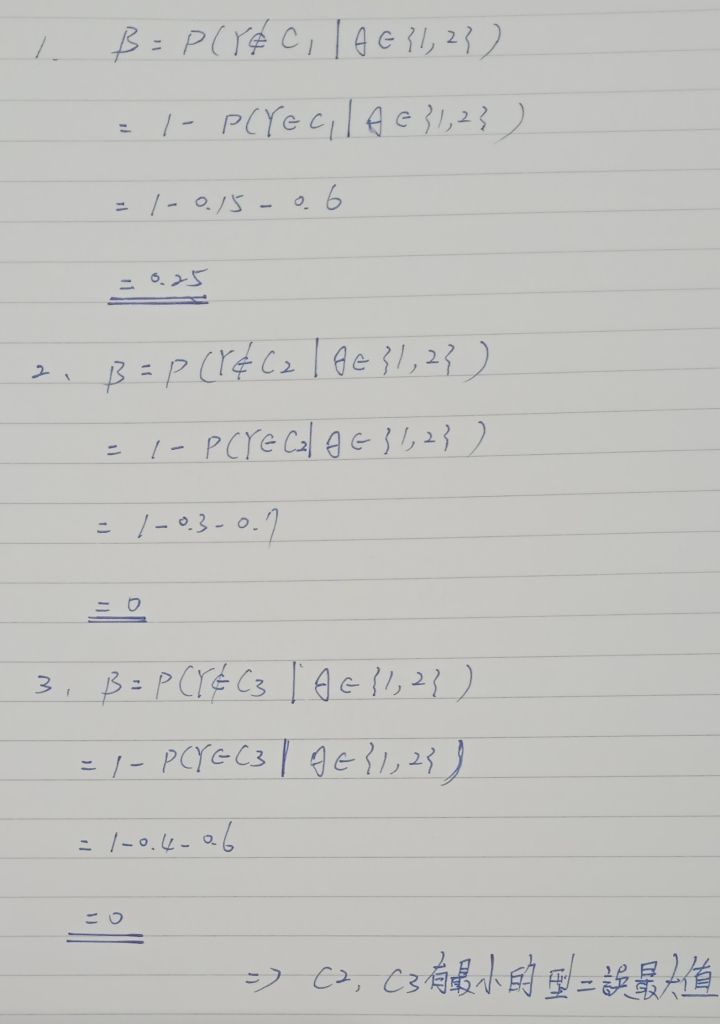 1. β = P(Y∉C₁ | θ∈{1,2})
= 1 - P(Y∈C₁ | θ∈{1,2})
= 1 - 0.15 - 0.6
= 0.25
2、 β = P(Y∉C₂ | θ∈{1,2})
= 1 - P(Y∈C₂ | θ∈{1,2})
= 1 - 0.3 - 0.7
= 0
3. β = P(Y∉C₃ | θ∈{1,2})
= 1 - P(Y∈C₃ | θ∈{1,2})
= 1 - 0.4 - 0.6
= 0
=> C2, C3有最小的型二誤最大值